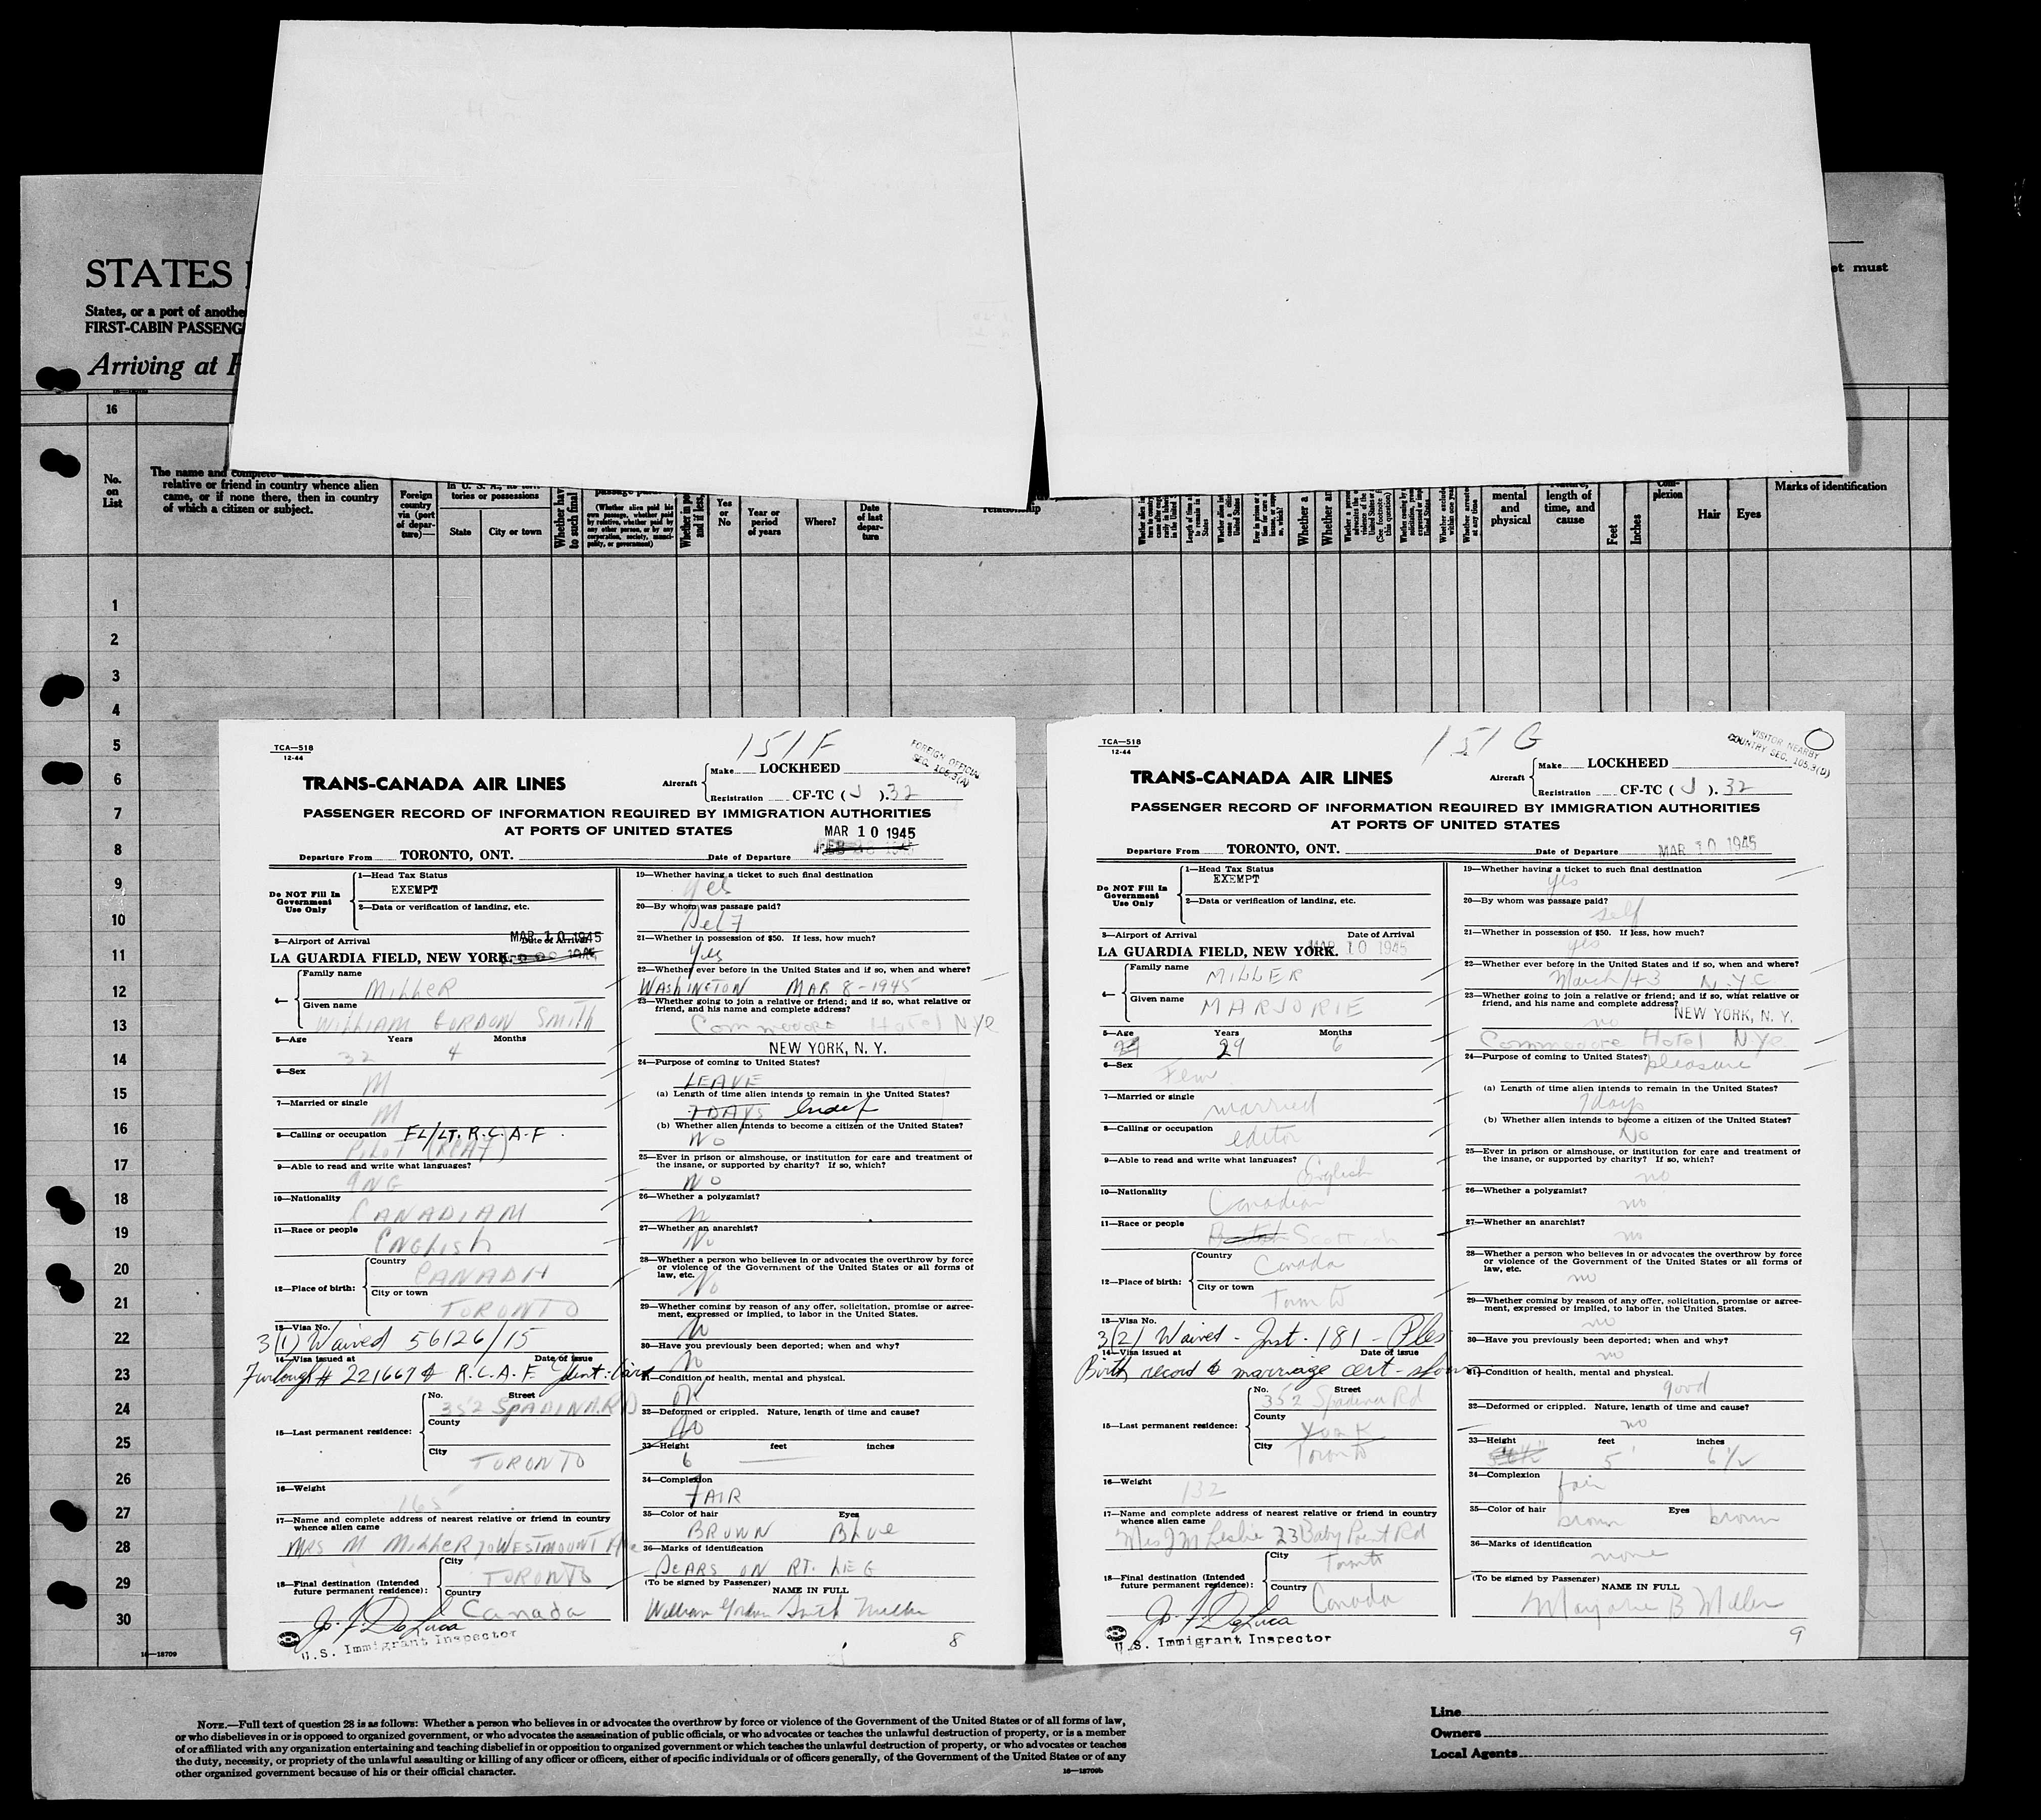 STATES
States, or a port of anothe
FIRST-CABIN PASSENG
Arriving at
et must
16
No. on List
The name and complete
relative or friend in country whence alien
came, or if none there, then in country
of which a citizen or subject.
Foreign country via (port of departure)—
in U. S. A., its territories or possessions
State
City or town
Whether hav
to such final
(Whether alien paid his own passage, whether paid by relative, whether paid by any other person, or by any corporation, society, municipality, or government)
Whether in po
and if less,
Yes or No
Year or period of years
Where?
Date of last departure
relationship
Whether a
Whether an
mental and physical
length of time, and cause
Feet
Inches
Complexion
Hair
Eyes
Marks of identification
1
2
3
4
5
6
7
8
9
10
11
12
13
14
15
16
17
18
19
20
21
22
23
24
25
26
27
28
29
30
16—18709
TCA—518
12-44
151F
FOREIGN OFFICIAL
SEC. 105.3(A)
TRANS-CANADA AIR LINES
Aircraft
Make LOCKHEED
Registration CF-TC ( J ). 32
PASSENGER RECORD OF INFORMATION REQUIRED BY IMMIGRATION AUTHORITIES
AT PORTS OF UNITED STATES
MAR 10 1945
Departure From TORONTO, ONT. Date of Departure
Do NOT Fill In Government Use Only
1—Head Tax Status
EXEMPT
2—Data or verification of landing, etc.
3—Airport of Arrival Date of Arrival
MAR 10 1945
LA GUARDIA FIELD, NEW YORK.
4—
Family name
MILLER
Given name
WILLIAM GORDON SMITH
5—Age Years Months
32 4
6—Sex
M
7—Married or single
M
8—Calling or occupation FL/LT. R.C.A.F.
Pilot (RCAF)
9—Able to read and write what languages?
ENG
10—Nationality
CANADIAN
11—Race or people
English
12—Place of birth:
Country
CANADA
City or town
TORONTO
13—Visa No.
3(1) Waived 56126/15
14—Visa issued at Date of issue
Furlough # 221667 R.C.A.F. Ident: Card
15—Last permanent residence:
No. Street
352 SPADINA RD
County
City
TORONTO
16—Weight
165
17—Name and complete address of nearest relative or friend in country
whence alien came
MRS M MILLER 70 WESTMOUNT Ave
18—Final destination (Intended
future permanent residence):
City
TORONTO
Country
Canada
J. J. DeLuca
U.S. Immigrant Inspector
19—Whether having a ticket to such final destination
yes
20—By whom was passage paid?
Self
21—Whether in possession of $50. If less, how much?
Yes
22—Whether ever before in the United States and if so, when and where?
WASHINGTON MAR 8-1945
23—Whether going to join a relative or friend; and if so, what relative or
friend, and his name and complete address?
Commodore Hotel NYC
NEW YORK, N. Y.
24—Purpose of coming to United States?
LEAVE
(a) Length of time alien intends to remain in the United States?
7 DAYS Indef
(b) Whether alien intends to become a citizen of the United States?
NO
25—Ever in prison or almshouse, or institution for care and treatment of
the insane, or supported by charity? If so, which?
NO
26—Whether a polygamist?
N
27—Whether an anarchist?
No
28—Whether a person who believes in or advocates the overthrow by force
or violence of the Government of the United States or all forms of
law, etc.
No
29—Whether coming by reason of any offer, solicitation, promise or agree-
ment, expressed or implied, to labor in the United States.
No
30—Have you previously been deported; when and why?
No
31—Condition of health, mental and physical.
OK
32—Deformed or crippled. Nature, length of time and cause?
No
33—Height feet inches
6
34—Complexion
FAIR
35—Color of hair Eyes
BROWN Blue
36—Marks of identification
SCARS ON RT. LEG
(To be signed by Passenger)
NAME IN FULL
William Gordon Smith Miller
8
TCA—518
12-44
151 G
VISITOR NEARBY
COUNTRY SEC. 105.3(D)
TRANS-CANADA AIR LINES
Aircraft
Make LOCKHEED
Registration CF-TC ( J ). 32
PASSENGER RECORD OF INFORMATION REQUIRED BY IMMIGRATION AUTHORITIES
AT PORTS OF UNITED STATES
Departure From TORONTO, ONT. Date of Departure MAR 10 1945
Do NOT Fill In Government Use Only
1—Head Tax Status
EXEMPT
2—Data or verification of landing, etc.
3—Airport of Arrival Date of Arrival
LA GUARDIA FIELD, NEW YORK. MAR 10 1945
4—
Family name
MILLER
Given name
MARJORIE
5—Age Years Months
29 29 6
6—Sex
Fem
7—Married or single
married
8—Calling or occupation
editor
9—Able to read and write what languages?
English
10—Nationality
Canadian
11—Race or people
Scottish
12—Place of birth:
Country
Canada
City or town
Toronto
13—Visa No.
3(2) Waived - Inst. 181 - Ples
14—Visa issued at Date of issue
Birth record & marriage cert - shown
15—Last permanent residence:
No. Street
352 Spadina Rd
County
York
City
Toronto
16—Weight
132
17—Name and complete address of nearest relative or friend in country
whence alien came
Mrs J M Leslie 23 Baby Point Rd
18—Final destination (Intended
future permanent residence):
City
Toronto
Country
Canada
J. J. DeLuca
U.S. Immigrant Inspector
19—Whether having a ticket to such final destination
yes
20—By whom was passage paid?
self
21—Whether in possession of $50. If less, how much?
yes
22—Whether ever before in the United States and if so, when and where?
March/43 N.Y.C
23—Whether going to join a relative or friend; and if so, what relative or
friend, and his name and complete address?
no
NEW YORK, N. Y.
Commodore Hotel NYC
24—Purpose of coming to United States?
pleasure
(a) Length of time alien intends to remain in the United States?
7 days
(b) Whether alien intends to become a citizen of the United States?
No
25—Ever in prison or almshouse, or institution for care and treatment of
the insane, or supported by charity? If so, which?
no
26—Whether a polygamist?
no
27—Whether an anarchist?
no
28—Whether a person who believes in or advocates the overthrow by force
or violence of the Government of the United States or all forms of
law, etc.
no
29—Whether coming by reason of any offer, solicitation, promise or agree-
ment, expressed or implied, to labor in the United States.
no
30—Have you previously been deported; when and why?
no
31—Condition of health, mental and physical.
good
32—Deformed or crippled. Nature, length of time and cause?
no
33—Height feet inches
5' 6 1/2
34—Complexion
fair
35—Color of hair Eyes
brown brown
36—Marks of identification
none
(To be signed by Passenger)
NAME IN FULL
Marjorie B Miller
9
NOTE.—Full text of question 28 is as follows: Whether a person who believes in or advocates the overthrow by force or violence of the Government of the United States or of all forms of law,
or who disbelieves in or is opposed to organized government, or who advocates the assassination of public officials, or who advocates or teaches the unlawful destruction of property, or is a member
of or affiliated with any organization entertaining and teaching disbelief in or opposition to organized government or which teaches the unlawful destruction of property, or who advocates or teaches
the duty, necessity, or propriety of the unlawful assaulting or killing of any officer or officers, either of specific individuals or of officers generally, of the Government of the United States or of any
other organized government because of his or their official character.
16—18709b
Line
Owners
Local Agents